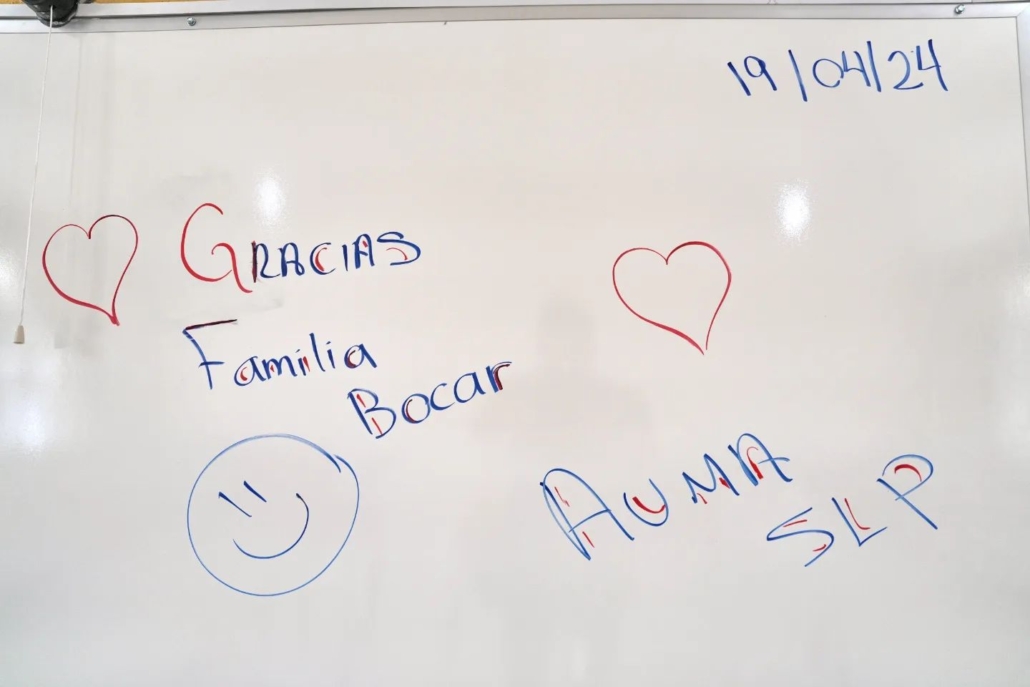 19/04/24
GRACIAS
Familia
Bocar
AUMA
SLP